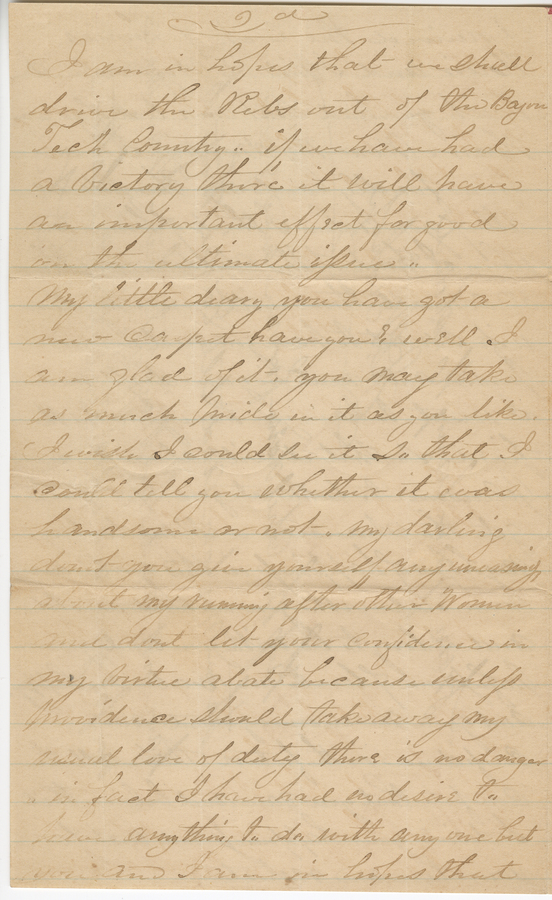 2d
I am in hopes that we shall
drive the Rebs out of the Bayou
Tech Country.. if we have had
a victory there it will have
an important effect for good
on the ultimate issue ..
My little deary you have got a
new carpet have you? well I
am glad of it. you may take
as much pride in it as you like.
I wish I could see it so that I
could tell you whether it was
handsome or not. my darling
dont you give yourself any uneasiness
about my running after other Women
and dont let your confidence in
my virtue abate because unless
Providence should take away my
usual love of duty there is no danger
.. in fact I have had no desire to
have anything to do with any one but
you and I am in hopes that